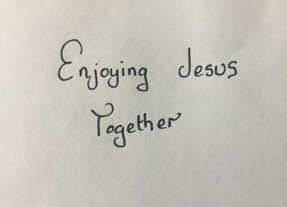 Enjoying Jesus
Together